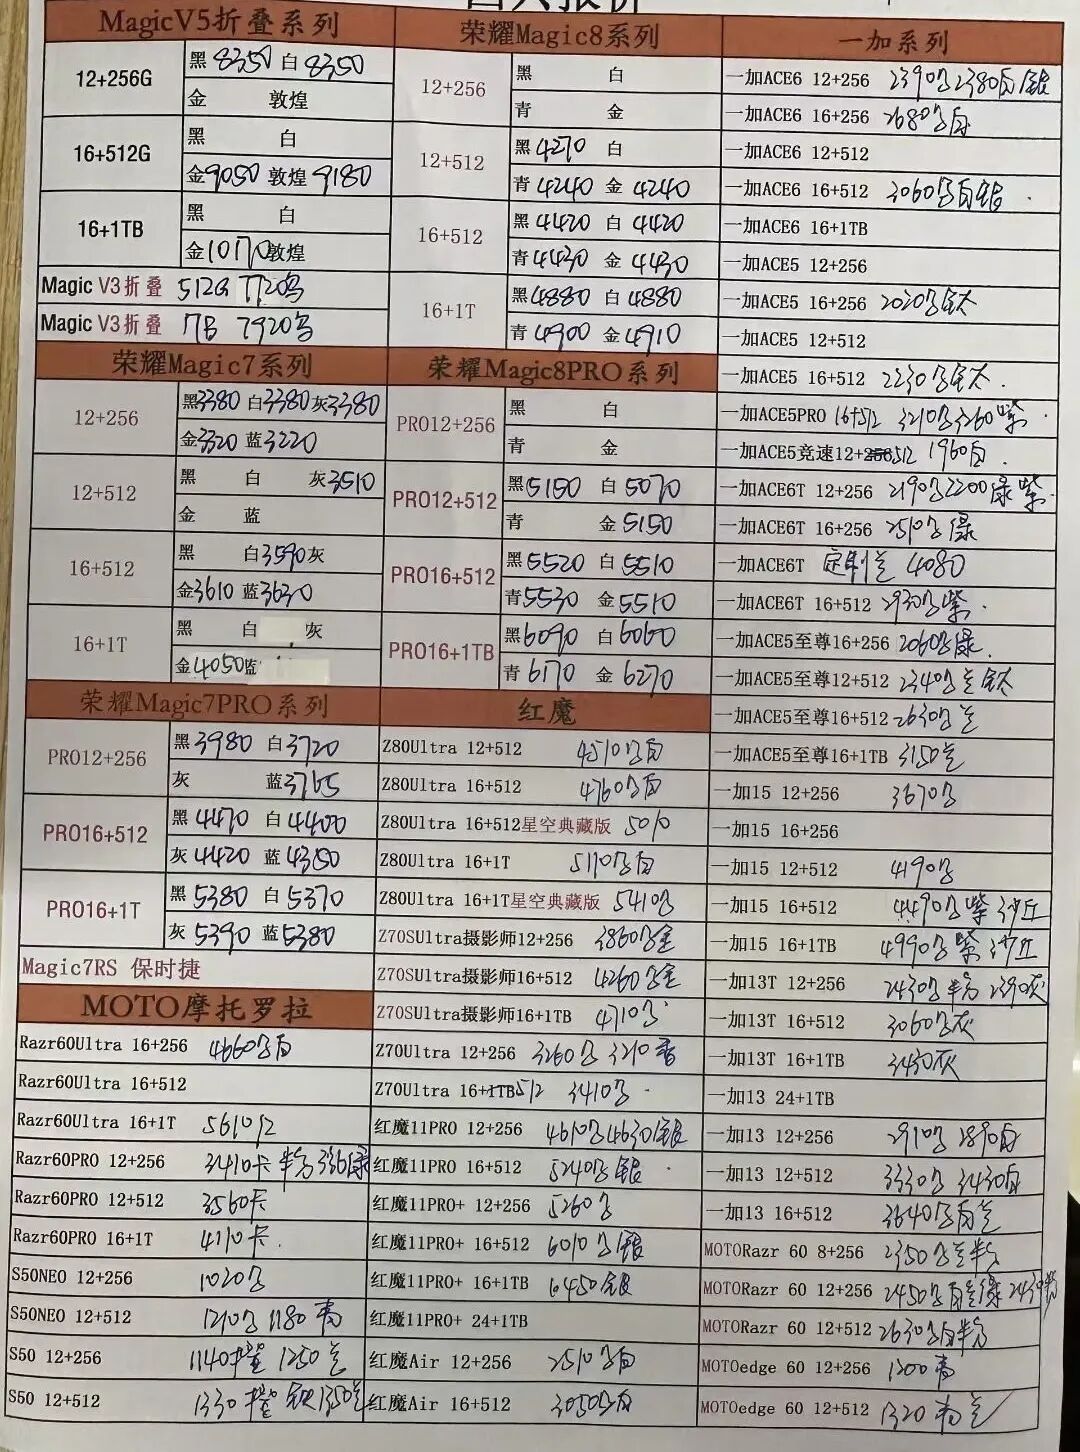 MagicV5折叠系列
12+256G
黑 8350 白 8350
金 敦煌
16+512G
黑 白
金9050 敦煌 9180
16+1TB
黑 白
金10170敦煌
Magic V3折叠 512G 7720
Magic V3折叠 1TB 7920
荣耀Magic7系列
12+256
黑3380 白3380 灰3380
金3320 蓝3220
12+512
黑 白 灰3510
金 蓝
16+512
黑 白3590 灰
金3610 蓝3630
16+1T
黑 白 灰
金4050蓝
荣耀Magic7PRO系列
PRO12+256
黑3980 白3720
灰 蓝3765
PRO16+512
黑4470 白4400
灰4420 蓝4380
PRO16+1T
黑5380 白5370
灰5390 蓝5380
Magic7RS 保时捷
MOTO摩托罗拉
Razr60Ultra 16+256 4660 白
Razr60Ultra 16+512
Razr60Ultra 16+1T 5610 红
Razr60PRO 12+256 3410卡
Razr60PRO 12+512 3560卡
Razr60PRO 16+1T 4110卡
S50NEO 12+256 1020
S50NEO 12+512 1210 1180 青
S50 12+256 1140 1250
S50 12+512 1330
荣耀Magic8系列
12+256
黑 白
青 金
12+512
黑4270 白
青4240 金4240
16+512
黑4420 白4420
青4430 金4430
16+1T
黑4880 白4880
青4900 金4910
荣耀Magic8PRO系列
PRO12+256
黑 白
青 金
PRO12+512
黑5150 白5070
青 金5150
PRO16+512
黑5520 白5510
青5530 金5510
PRO16+1TB
黑6090 白6060
青6170 金6270
红魔
Z80Ultra 12+512 4510 白
Z80Ultra 16+512 4760 白
Z80Ultra 16+512星空典藏版 5010
Z80Ultra 16+1T 5110 白
Z80Ultra 16+1T星空典藏版 5410
Z70SUltra摄影师12+256 3860 金
Z70SUltra摄影师16+512 4260 金
Z70SUltra摄影师16+1TB 4710
Z70Ultra 12+256 3260 3210
Z70Ultra 16+512 3410
红魔11PRO 12+256 4610 4630银
红魔11PRO 16+512 5240 银
红魔11PRO+ 12+256 5260
红魔11PRO+ 16+512 6010 银
红魔11PRO+ 16+1TB 6450银
红魔11PRO+ 24+1TB
红魔Air 12+256 2510 白
红魔Air 16+512 3050 白
一加系列
一加ACE6 12+256 2390 2380白银
一加ACE6 16+256 2680 白
一加ACE6 12+512
一加ACE6 16+512 3060 白银
一加ACE6 16+1TB
一加ACE5 12+256
一加ACE5 16+256 2020 钛
一加ACE5 12+512
一加ACE5 16+512 2230 钛
一加ACE5PRO 16+512 3210 3260紫
一加ACE5竞速12+512 1960白
一加ACE6T 12+256 2190 2200绿紫
一加ACE6T 16+256 2510 绿
一加ACE6T 定制 4080
一加ACE6T 16+512 2930 紫
一加ACE5至尊16+256 2060 绿
一加ACE5至尊12+512 2340 钛
一加ACE5至尊16+512 2630
一加ACE5至尊16+1TB 3150
一加15 12+256 3670
一加15 16+256
一加15 12+512 4190
一加15 16+512 4490 紫 沙丘
一加15 16+1TB 4990 紫 沙丘
一加13T 12+256 2430 2390灰
一加13T 16+512 3060 灰
一加13T 16+1TB 3430灰
一加13 24+1TB
一加13 12+256 2910 2890白
一加13 12+512 3330 3430白
一加13 16+512 3640 白
MOTORazr 60 8+256 2350
MOTORazr 60 12+256 2450
MOTORazr 60 12+512 2630 白
MOTOedge 60 12+256 1200青
MOTOedge 60 12+512 1320 青